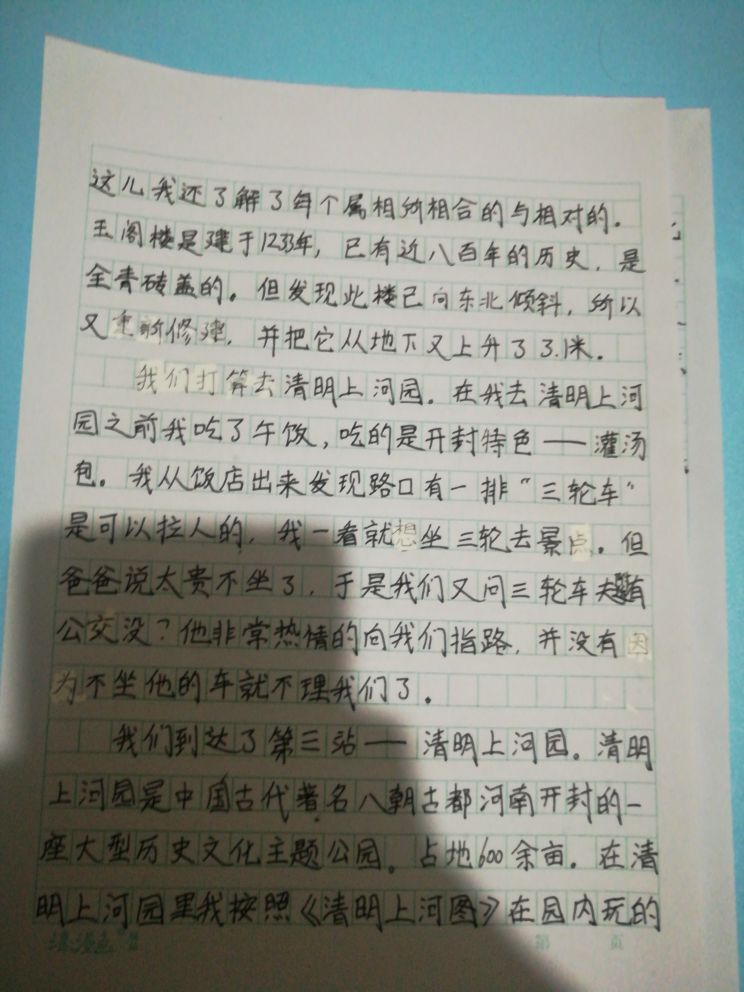 这儿我还了解了每个属相所相合的与相对的。
玉阁楼是建于1233年，已有近八百年的历史，是
全青砖盖的。但发现此楼已向东北倾斜，所以
又重新修建，并把它从地下又上升了3.1米。
我们打算去清明上河园。在我去清明上河
园之前我吃了午饭，吃的是开封特色——灌汤
包。我从饭店出来发现路口有一排“三轮车”
是可以拉人的，我一看就想坐三轮去景点。但
爸爸说太贵不坐了，于是我们又问三轮车夫有
公交没？他非常热情的向我们指路，并没有因
为不坐他的车就不理我们了。
我们到达了第三站——清明上河园。清明
上河园是中国古代著名八朝古都河南开封的一
座大型历史文化主题公园。占地600余亩。在清
明上河园里我按照《清明上河图》在园内玩的
第 页